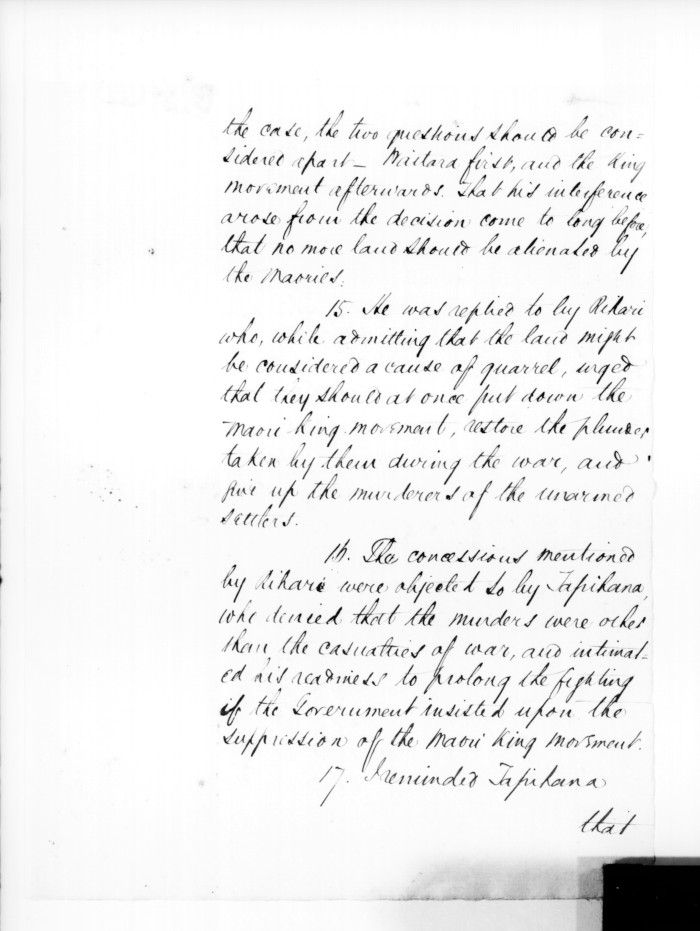 the case, the two questions should be con=
sidered apart – Waitara first, and the King
movement afterwards. That his interference
arose from the decision come to long before,
that no more land should be alienated by
the Maories.
15. He was replied to by Rihari
who, while admitting that the land might
be considered a cause of quarrel, urged
that they should at once put down the
Maori King movement, restore the plunder
taken by them during the war, and
give up the murderers of the unarmed
settlers.
16. The concessions mentioned
by Rihari were objected to by Tapihana,
who denied that the murders were other
than the casualties of war, and intimat=
ed his readiness to prolong the fighting
if the Government insisted upon the
suppression of the Maori King movement.
17. I reminded Tapihana
that